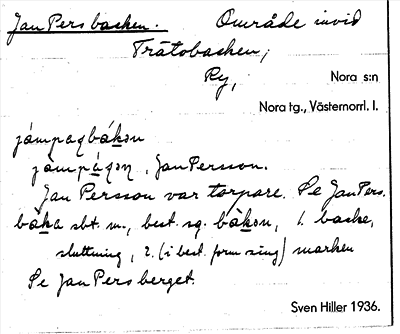 Jan Pers backen. Område invid
Tråtobacken,
Ry, Nora s:n
Nora tg., Västernorrl. l.
jámpaqbákən
jàmpàqən, Jan Persson.
Jan Persson var torpare. Se Jan Pers.
bàka sbt. m., best. sg. bàkən, 1. backe,
sluttning, 2. (i best. form sing) marken
Se Jan Pers berget.
Sven Hiller 1936.